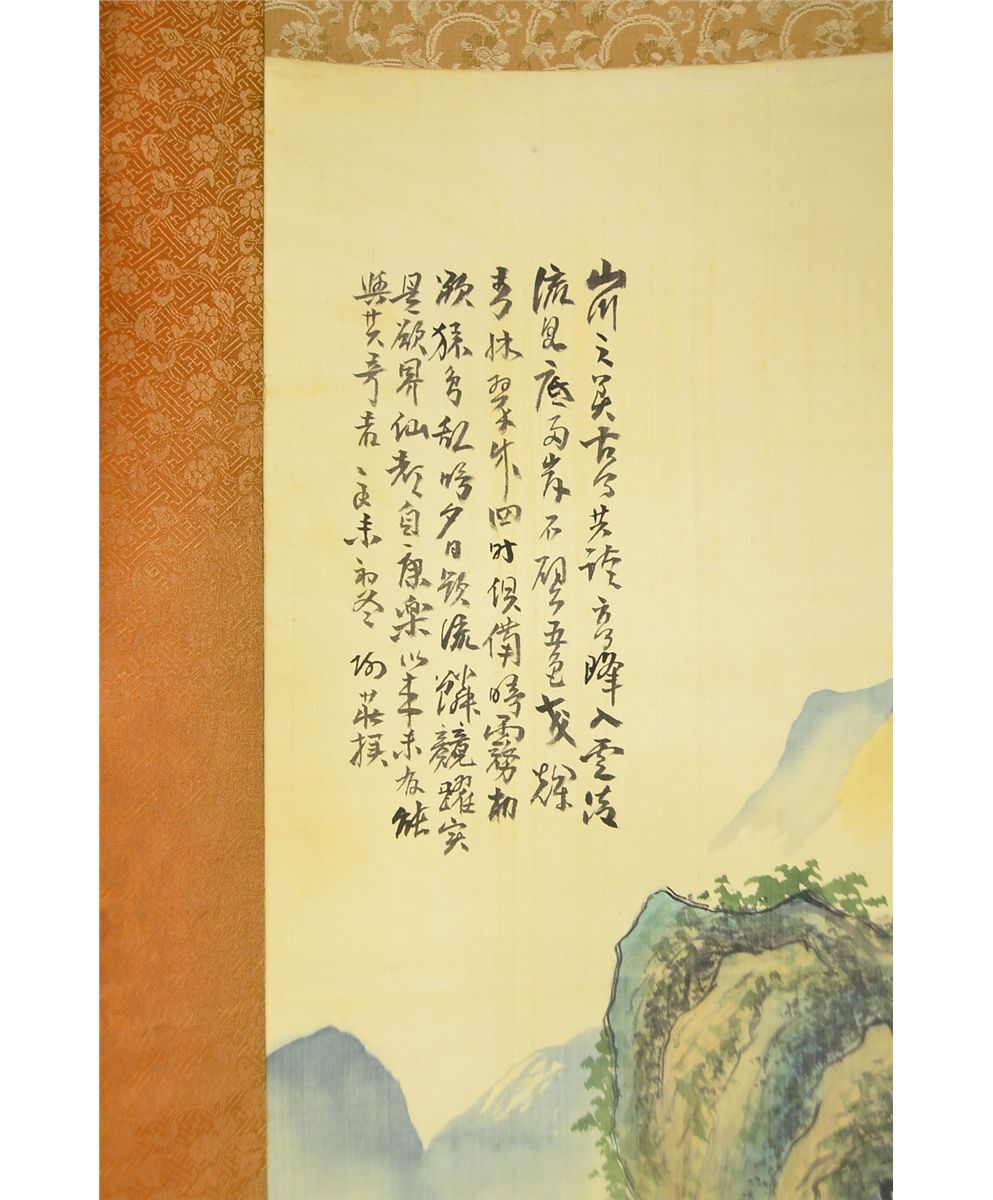 山川之美古今共談高峰入雲清
流見底兩岸石壁五色交輝
青林翠竹四时俱備霧
歇猿鳥乱鳴夕日頹流鱗競躍实
是欲界仙都自康楽以来未有能
與其奇者 辛未初冬 莊撰